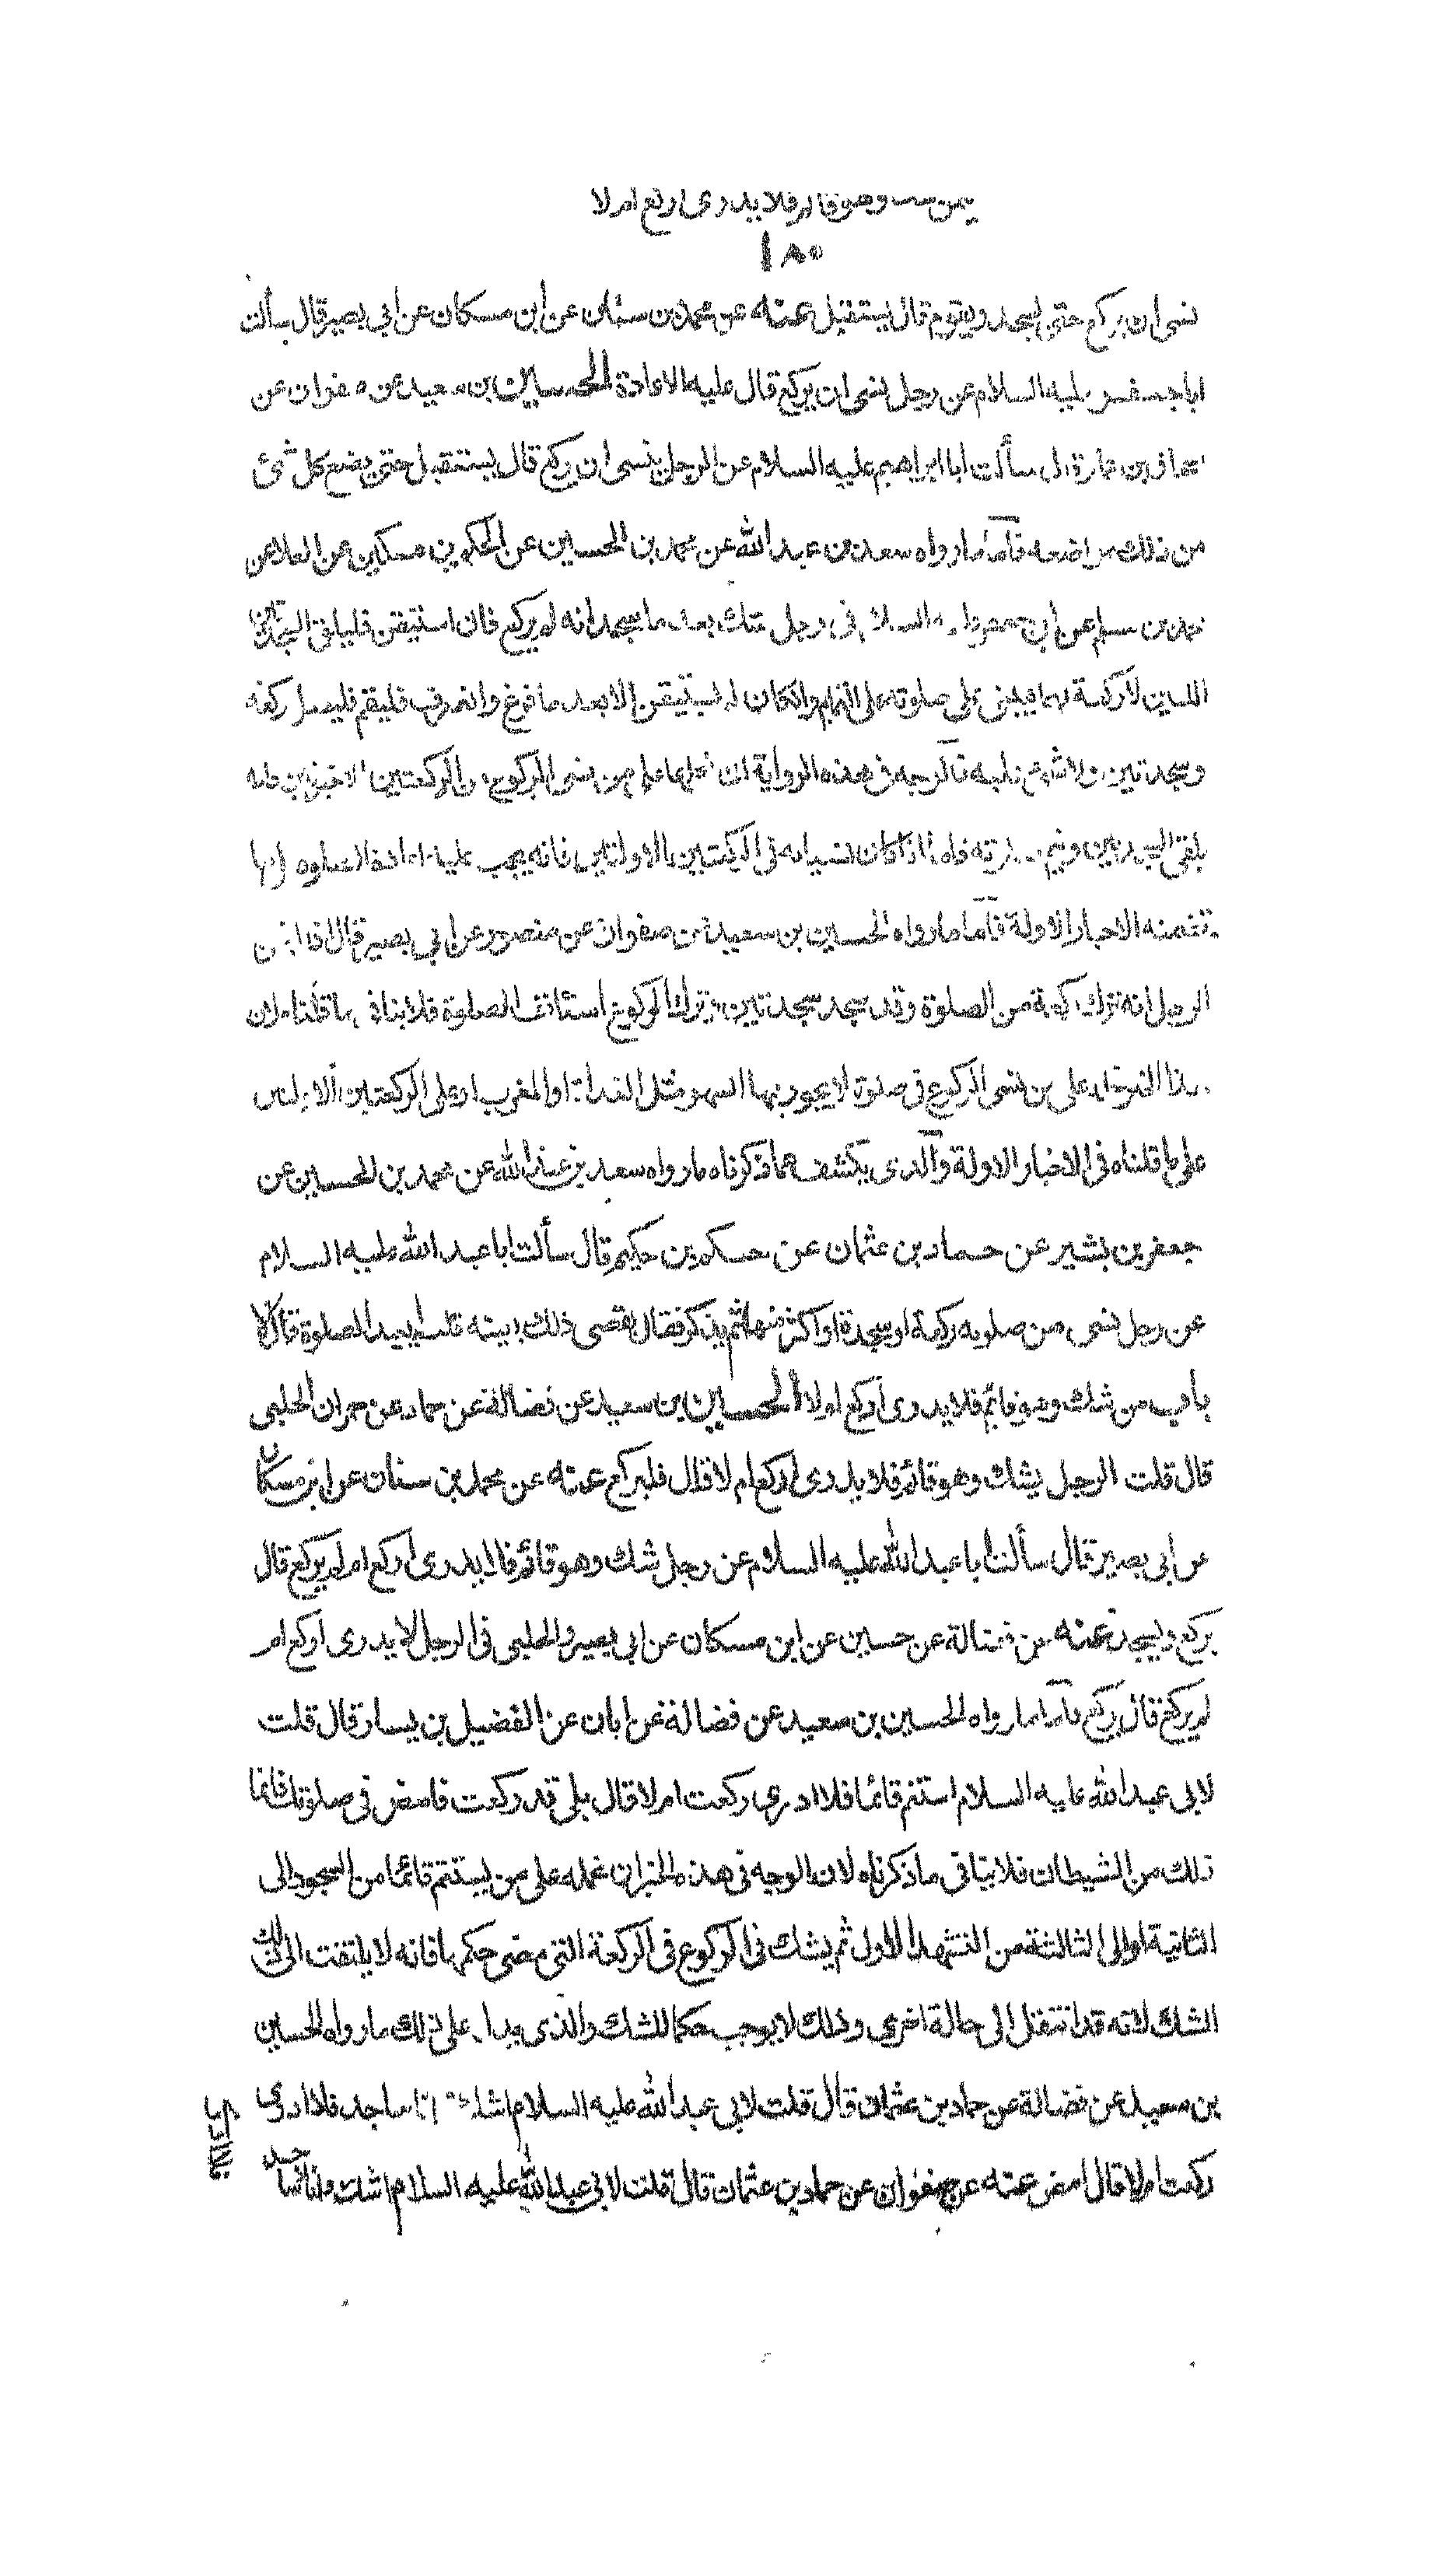 فيمن شك وهو قائم فلا يدري اركع ام لا
١٨٠
نسى ان يركع حتى يسجد ويقوم قال يستقبل عنه عن محمد بن سنان عن ابن مسكان عن ابي بصير قال سألت
ابا جعفر عليه السلام عن رجل نسى ان يركع قال عليه الاعادة الحسين بن سعيد عن صفوان عن
اسحاق بن عمار قال سألت ابا ابراهيم عليه السلام عن الرجل ينسى ان يركع قال يستقبل حتى يضع كل شئ
من ذلك مواضعه فأما ما رواه سعد بن عبد الله عن محمد بن الحسين عن الحكم بن مسكين عن العلا عن
محمد بن مسلم عن ابي جعفر عليه السلام في رجل شك بعد ما سجد انه لم يركع فان استيقن فليلق السجدتين
اللتين لا ركعة لهما فيبنى على صلوته على التمام وان كان لم يستيقن الا بعد ما فرغ وانصرف فليقم فليصل ركعة
وسجدتين ولا شئ عليه فالوجه في هذه الرواية ان نحملها على من نسى الركوع من الركعتين الاخيرتين فانه
يلقى السجدتين ويتم صلوته فاما اذا كان نسيانه في الركعتين الاولتين فانه يجب عليه اعادة الصلوة
تضمنه الاخبار الاولة فأما ما رواه الحسين بن سعيد عن صفوان عن منصور عن ابي بصير قال اذا ايقن
الرجل انه ترك ركعة من الصلوة وقد سجد سجدتين وترك الركوع استأنف الصلوة فلا ينافي ما قلناه لان
هذا الخبر على من نسى الركوع في صلوة لا يجوز فيها السهو مثل الغداة او المغرب او على الركعتين الاولتين
على ما قلناه في الاخبار الاولة والذى يكشف عما ذكرناه ما رواه سعد بن عبد الله عن محمد بن الحسين عن
جعفر بن بشير عن حماد بن عثمان عن حكم بن حكيم قال سألت ابا عبد الله عليه السلام
عن رجل نسى من صلوته ركعة او سجدة او اكثر منها ثم يذكر فقال يقضى ذلك بعينه قلت ايعيد الصلوة قال لا
باب من شك وهو قائم فلا يدرى اركع ام لا الحسين بن سعيد عن فضالة عن حماد عن عمران الحلبى
قال قلت الرجل يشك وهو قائم فلا يدرى اركع ام لا قال فليركع عنه عن محمد بن سنان عن ابن مسكان
عن ابى بصير قال سألت ابا عبد الله عليه السلام عن رجل شك وهو قائم فلا يدرى اركع ام لم يركع قال
يركع ويسجد عنه عن فضالة عن حسين عن ابن مسكان عن ابى بصير والحلبى في الرجل لا يدرى اركع ام
لم يركع قال يركع فأما ما رواه الحسين بن سعيد عن فضالة عن ابان عن الفضيل بن يسار قال قلت
لابى عبد الله عليه السلام استتم قائما فلا ادرى ركعت ام لا قال بلى قد ركعت فامض في صلوتك فانما
ذلك من الشيطان فلا ينافى ما ذكرناه لان الوجه في هذه الخبر ان نحمله على من يستتم قائما من السجود الى
الثانية او الى الثالثة من التشهد الاول ثم يشك في الركوع في الركعة التى مضى حكمها فانه لا يلتفت الى ذلك
الشك لانه قد انتقل الى حالة اخرى وذلك لا يوجب حكما للشك والذى يدل على ذلك ما رواه الحسين
بن سعيد عن فضالة عن حماد بن عثمان قال قلت لابى عبد الله عليه السلام اشك وانا ساجد فلا ادرى
ركعت ام لا قال امض عنه عن صفوان عن حماد بن عثمان قال قلت لابى عبد الله عليه السلام اشك وانا ساجد
فلا ادرى